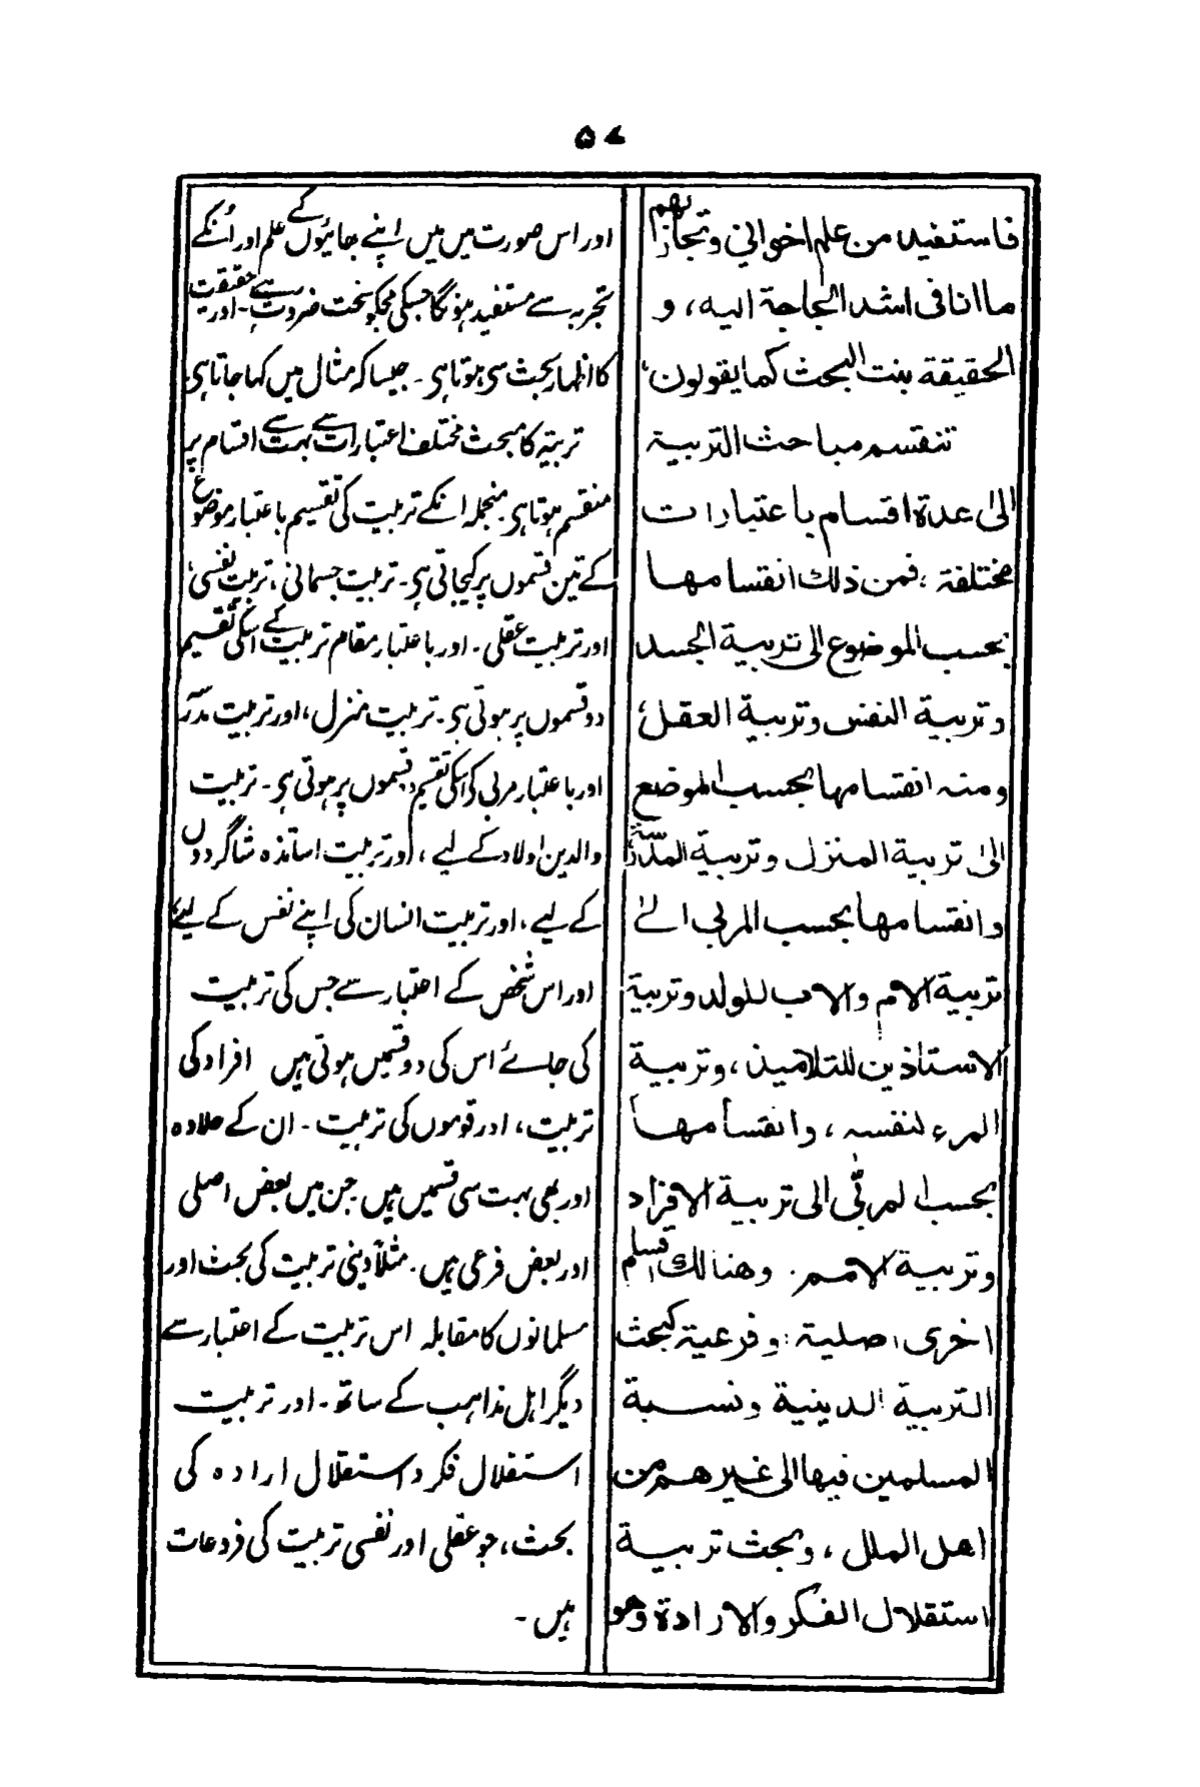 ۵۷
فاستفید من علم اخوانی وتجاربهم
ما انا فی اشد الحاجة الیه، و
الحقیقة بنت البحث کما یقولون،
تنقسم مباحث التربیة
الیٰ عدة اقسام باعتبارات
مختلفة؛ فمن ذلك انقسامها
بحسب الموضوع الی تربیة الجسد
وتربیة النفس وتربیة العقل؛
ومنه انقسامها بحسب الموضع
الیٰ تربیة المنزل وتربیة المدرسة
وانقسامها بحسب المربی الیٰ
تربیة الام والاب للولد وتربیة
الاستاذین للتلامیذ، وتربیة
المرء لنفسه، وانقسامها
بحسب المربّٰی الی تربیة الافراد
وتربیة الامم. وهنالك اقسام
اخری اصلیة وفرعیة کبحث
التربیة الدینیة ونسبة
المسلمین فیها الی غیرهم من
اهل الملل، وبحث تربیة
استقلال الفکر والارادة وهو
اور اس صورت میں میں اپنے بھائیوں کے علم اور اُنکے
تجربہ سے مستفید ہونگا جسکی مجکو سخت ضرورت ہے۔ اور حقیقت
کا اظہار بحث سی ہوتا ہی۔ جیسا کہ مثال میں کہا جاتا ہی
تربیۃ کا مبحث مختلف اعتبارات سے بہت سے اقسام پر
منقسم ہوتا ہی۔ منجملہ انکے تربیت کی تقسیم باعتبار موضوع
کے تین قسموں پر کیجاتی ہی۔ تربیت جسمانی، تربیت نفسی،
اور تربیت عقلی۔ اور باعتبار مقام تربیت کے اسکی تقسیم
دو قسموں پر ہوتی ہی۔ تربیت منزل، اور تربیت مدرسہ
اور باعتبار مربی کی اسکی تقسیم قسموں پر ہوتی ہی۔ تربیت
والدین اولاد کے لیے، اور تربیت اساتذہ شاگردوں
کے لیے، اور تربیت انسان کی اپنے نفس کے لیے،
اور اس شخص کے اعتبار سے جس کی تربیت
کی جائے اس کی دو قسمیں ہوتی ہیں افراد کی
تربیت، اور قوموں کی تربیت۔ ان کے علاوہ
اور بھی بہت سی قسمیں ہیں جن میں بعض اصلی
اور بعض فرعی ہیں۔ مثلاً دینی تربیت کی بحث اور
مسلمانوں کا مقابلہ اس تربیت کے اعتبار سے
دیگر اہل مذاہب کے ساتھ۔ اور تربیت
استقلال فکر و استقلال ارادہ کی
بحث، جو عقلی اور نفسی تربیت کی فروعات
ہیں۔